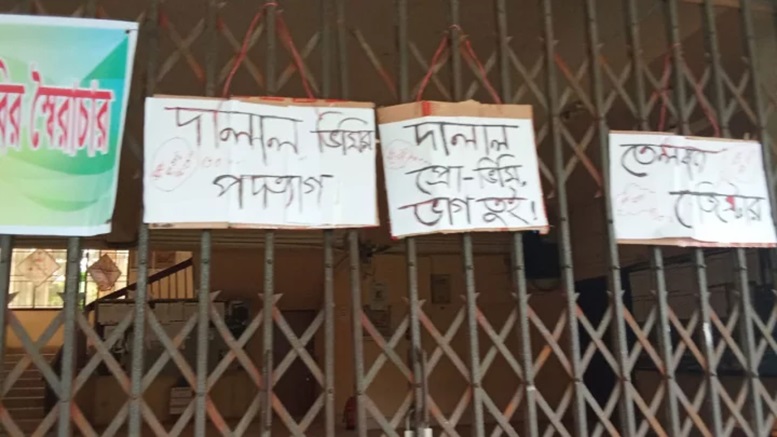 বির স্বৈরাচার
দালাল ভিসির
পদত্যাগ
দালাল
প্রো-ভিসি,
ভাগ তুই!
তেলবাজ
রেজিস্টার